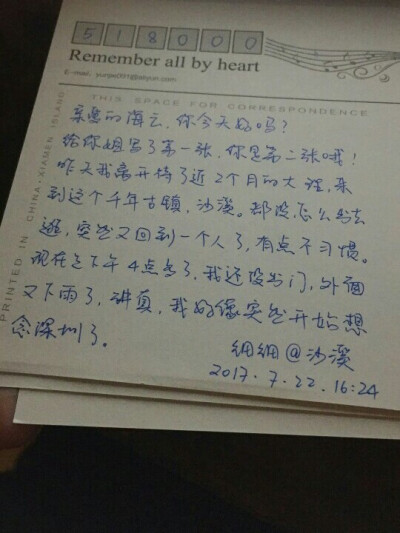 518000
Remember all by heart
E-mail: yunjie0311@aliyun.com
THIS SPACE FOR CORRESPONDENCE
亲爱的海云,你今天好吗?
给你姐写了第一张,你是第二张哦!
昨天我离开待了近2个月的大理,来
到这个千年古镇,沙溪。都没怎么出去
逛,突然又回到一个人了,有点不习惯。
现在是下午4点多了,我还没出门,外面
又下雨了,讲真,我好像突然开始想
念深圳了。
细细@沙溪
2017.7.22.16:24
PRINTED IN CHINA·XIAMEN ISLAND